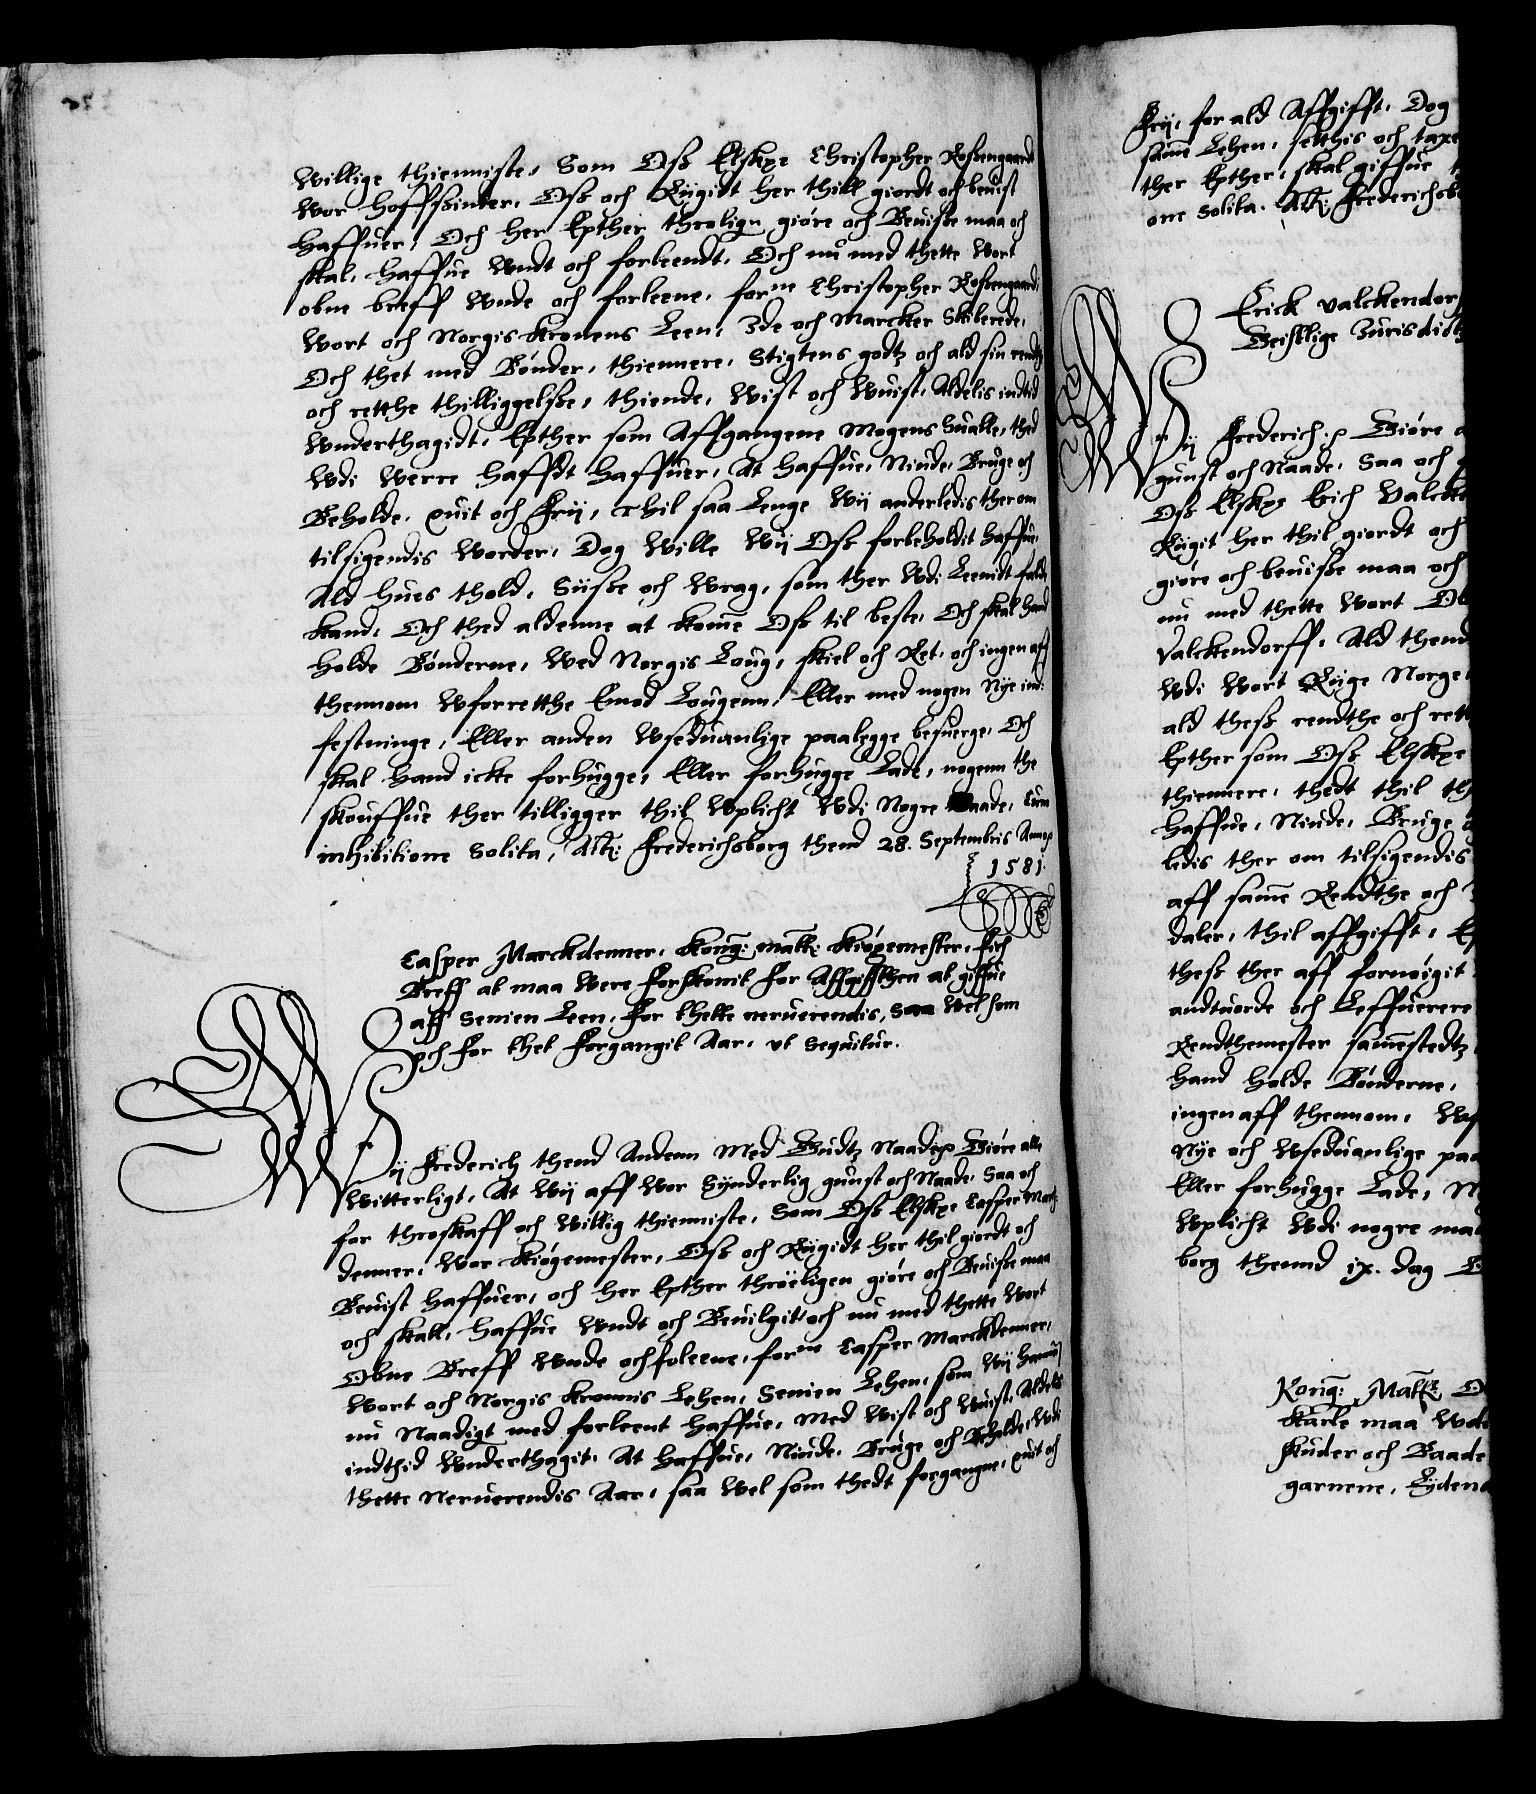 willige thienniste, Som Oß Elskxe Christopher Roßengaard
wor hoffßinder, Oß och Rijgidt her thill giordt och beuist
haffuer, Och her Epther throlign giøre och Beuiße maa och
skal, haffue undt och forleendt, Och nu med thette wort
obne breff unde och forleene, forne Christopher Roßengaard,
Wort och Norgis kronens Leen, Jde och Marcker Skiberede,
Och thet med Bønder, thiennere, Stigtens godtz och ald sin rendtz
och retthe thilliggelße, thiende, Wist och Wuist, Aldelis indtid
Wnderthagidt, Epther som Affgangene Mogens Sualle, thed
Wdi Werre hafft haffuer, At haffue, Niude, Bruge och
Beholde, quit och frij, Thil saa Lenge Wij anderledis ther om
tilsigendis worder, Dog Wille Wij Oß forbeholdit haffue,
Ald hues thold, Sijße och Wrag, som ther Wdi Leenidt falde
kand, Och thed aldenne at komme Oß til beste, Och skal hand
holde Bønderne, Wed Norgis Loug, skiel och Ret, och ingen aff
thennom Wforretthe Emod Lougenn, Eller med nogen Nye ind:
festninge, Eller anden Wseduanlige paalegge besuerge, Och
skal hand ickte forhugge, Eller forhugge Lade, nogenn the
skouffue ther tilligger thil Wplicht Wdi Nogre Maade, Cum
inhibitione Solita, Actt: Frederichsborg thend 28. Septembris Annop
1581.
Casper Marckdenner, Kong: Matt: Kiøgemester, fich
Breff at maa were forskonit for Affgifften at giffue
aff Senien Leen, for thette neruerendis, saa wel som
och for thet forgangit Aar, ut Sequitur.
Wij Frederich thend Andenn Med Gudtz Naadep Giøre alle
witterligt, At Wij aff wor Synderlig gunst och Naade, Saa och
for throskaff och willig thienniste, Som Oß Elskxe Casper Marck
denner, wor kiøgemester, Oß och Rijgidt her thil giordt och
Beuist haffuer, och her Epther thrøeligen giøre och Beuiße maa
och skall, haffue undt och Beuilgit, och nu med thette wort
Obne Breff Wnde och foleene, forne Casper Marckdenner,
Wort och Norgis kronnis Lehen, Senien Lehen, som Wij hannom
nu Naadigt med forleent haffue, Med Wist och Wuist, Aldelis
indthid Wnderthagit, At haffue, Niude, Bruge och Beholde, Wdi
thette Neruerendis Aar, saa wel som thedt forgangne, quit och
frij, for ald Affgifft, Dog
samme Lehen, setthis och taxe
ther Epther, skal giffue
one Solita. Actt: Frederichsb
Erick Valckendorf
Geistlige Jurisdict
Wij Frederich: p Giøre
gunst och Naade, Saa och
Oß Elskxe Erich Valck
Rigit her thil giordt och
giøre och beuiße maa och
nu med thette wort Ob
Valckendorff, Ald thend
Wdi Wort Rige Norge
ald theß rendthe och rett
Epther som Oß Elskxe
thiennere, thedt thil th
haffue, Niude, Bruge
ledis ther om tilsigendis
aff samme Rendthe och
daler, thil affgifft, E
theß ther aff fornøigit
andtuorde och Leffuerere
Rendthemester sammestedtz
hand holde Bønderne,
ingen aff thennom, Wf
Nye och Wseduanlige paa
Eller forhugge Lade,
Wplicht Wdi nogre maa
borg thennd ix. dag
Kong: Matt:
Karle maa
skuder och Baade
garnene,